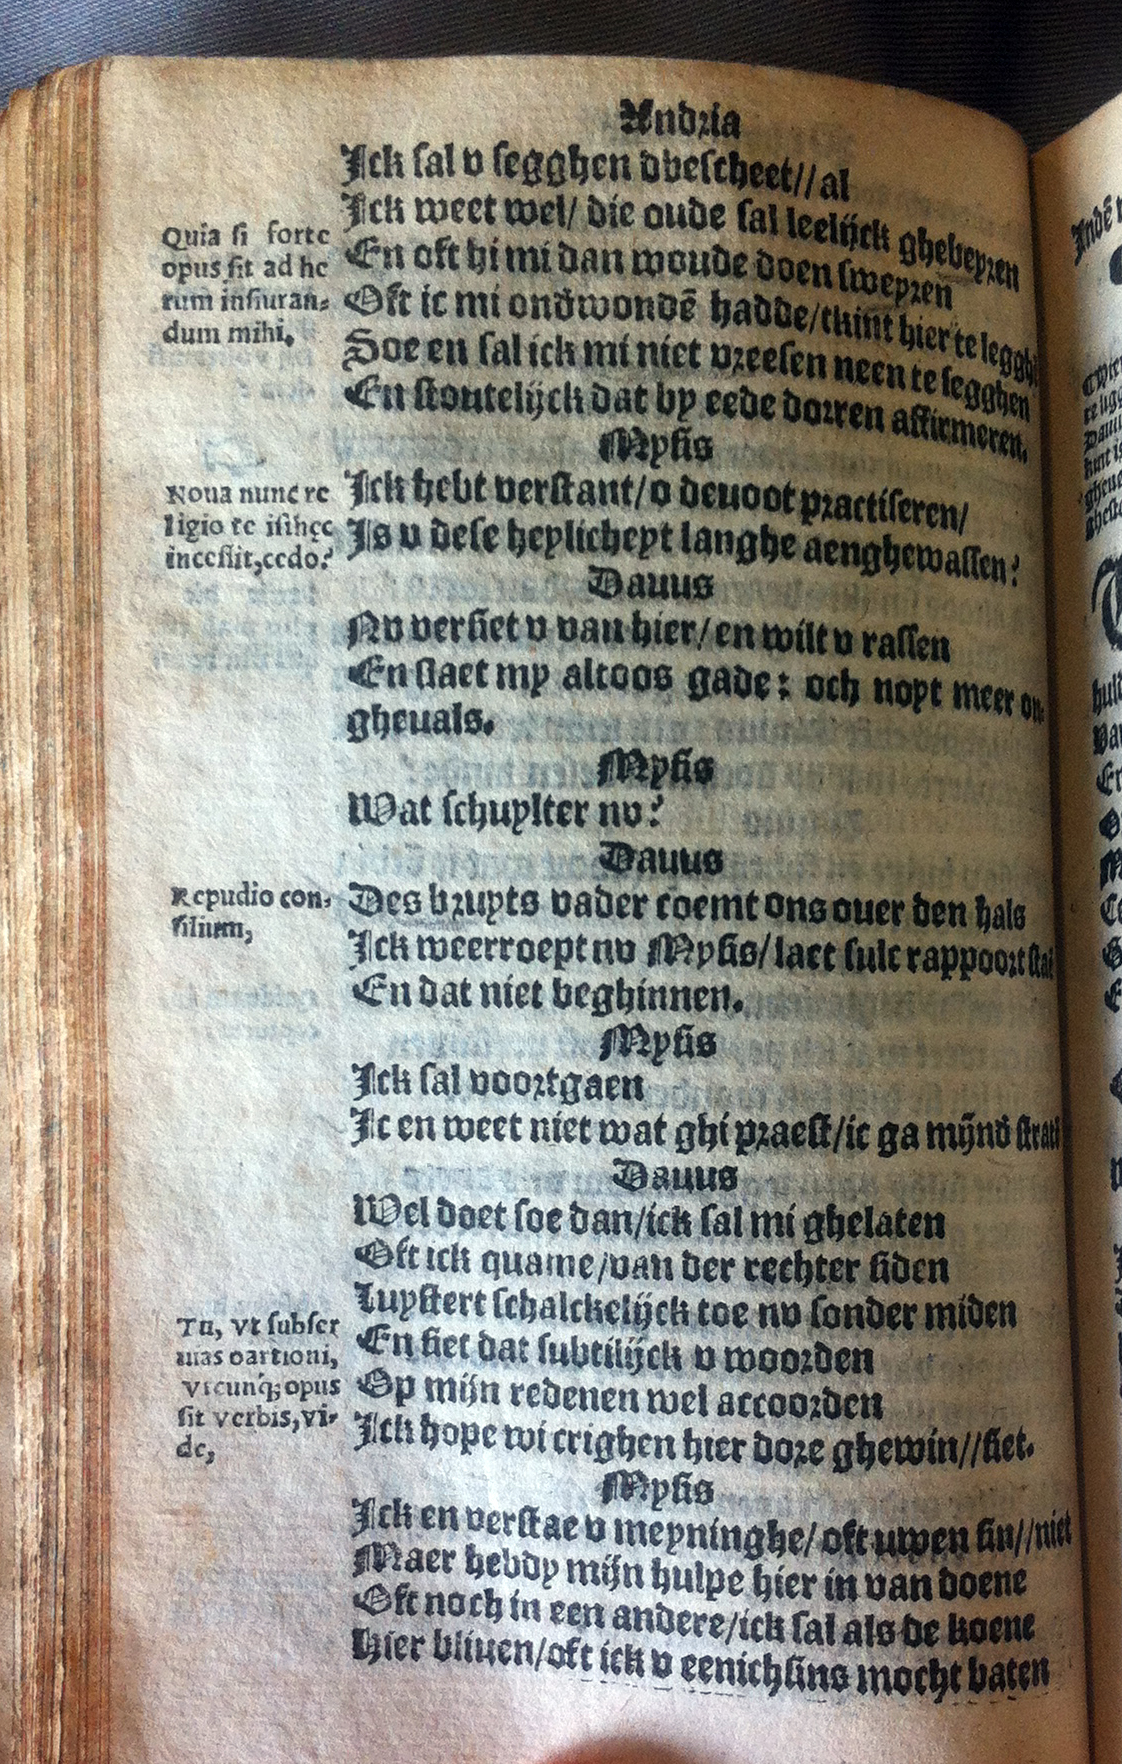 Andria
Ick sal v segghen dbescheet//al
Ick weet wel/ die oude sal leelijck ghebeyren
Quia si forte
opus sit ad he
rum iusiuran-
dum mihi,
En oft hi mi dan woude doen sweyren
Oft ic mi ondwondē hadde/tkint hier te leggh
Soe en sal ick mi niet vreesen neen te segghen
En stoutelijck dat by eede dorren affirmeren.
Mysis
Noua nunc re
ligio te isthęc
incessit,cedo?
Ick hebt verstant/o deuoot practiseren/
Is v dese heylicheyt langhe aenghewassen?
Dauus
Nv versiet v van hier/en wilt v rassen
En slaet my altoos gade: och noyt meer on-
gheuals.
Mysis
Wat schuylter nv?
Dauus
Repudio con-
silium,
Des bruyts vader coemt ons ouer den hals
Ick weerroept nv Mysis/laet sulc rappoort sta
En dat niet beghinnen.
Mysis
Ick sal voortgaen
Ic en weet niet wat ghi praest/ic ga mijnd strat
Dauus
Wel doet soe dan/ick sal mi ghelaten
Oft ick quame/van der rechter siden
Tu, vt subser
uias oartioni,
vtcunq; opus
sit verbis,vi-
de,
Luystert schalckelijck toe nv sonder miden
En siet dat subtilijck v woorden
Op mijn redenen wel accoorden
Ick hope wi crighen hier dore ghewin//siet.
Mysis
Ick en verstae v meyninghe/oft uwen sin//niet
Maer hebdy mijn hulpe hier in van doene
Oft noch in een andere/ick sal als de koene
Hier bliuen/oft ick v eenichsins mocht baten